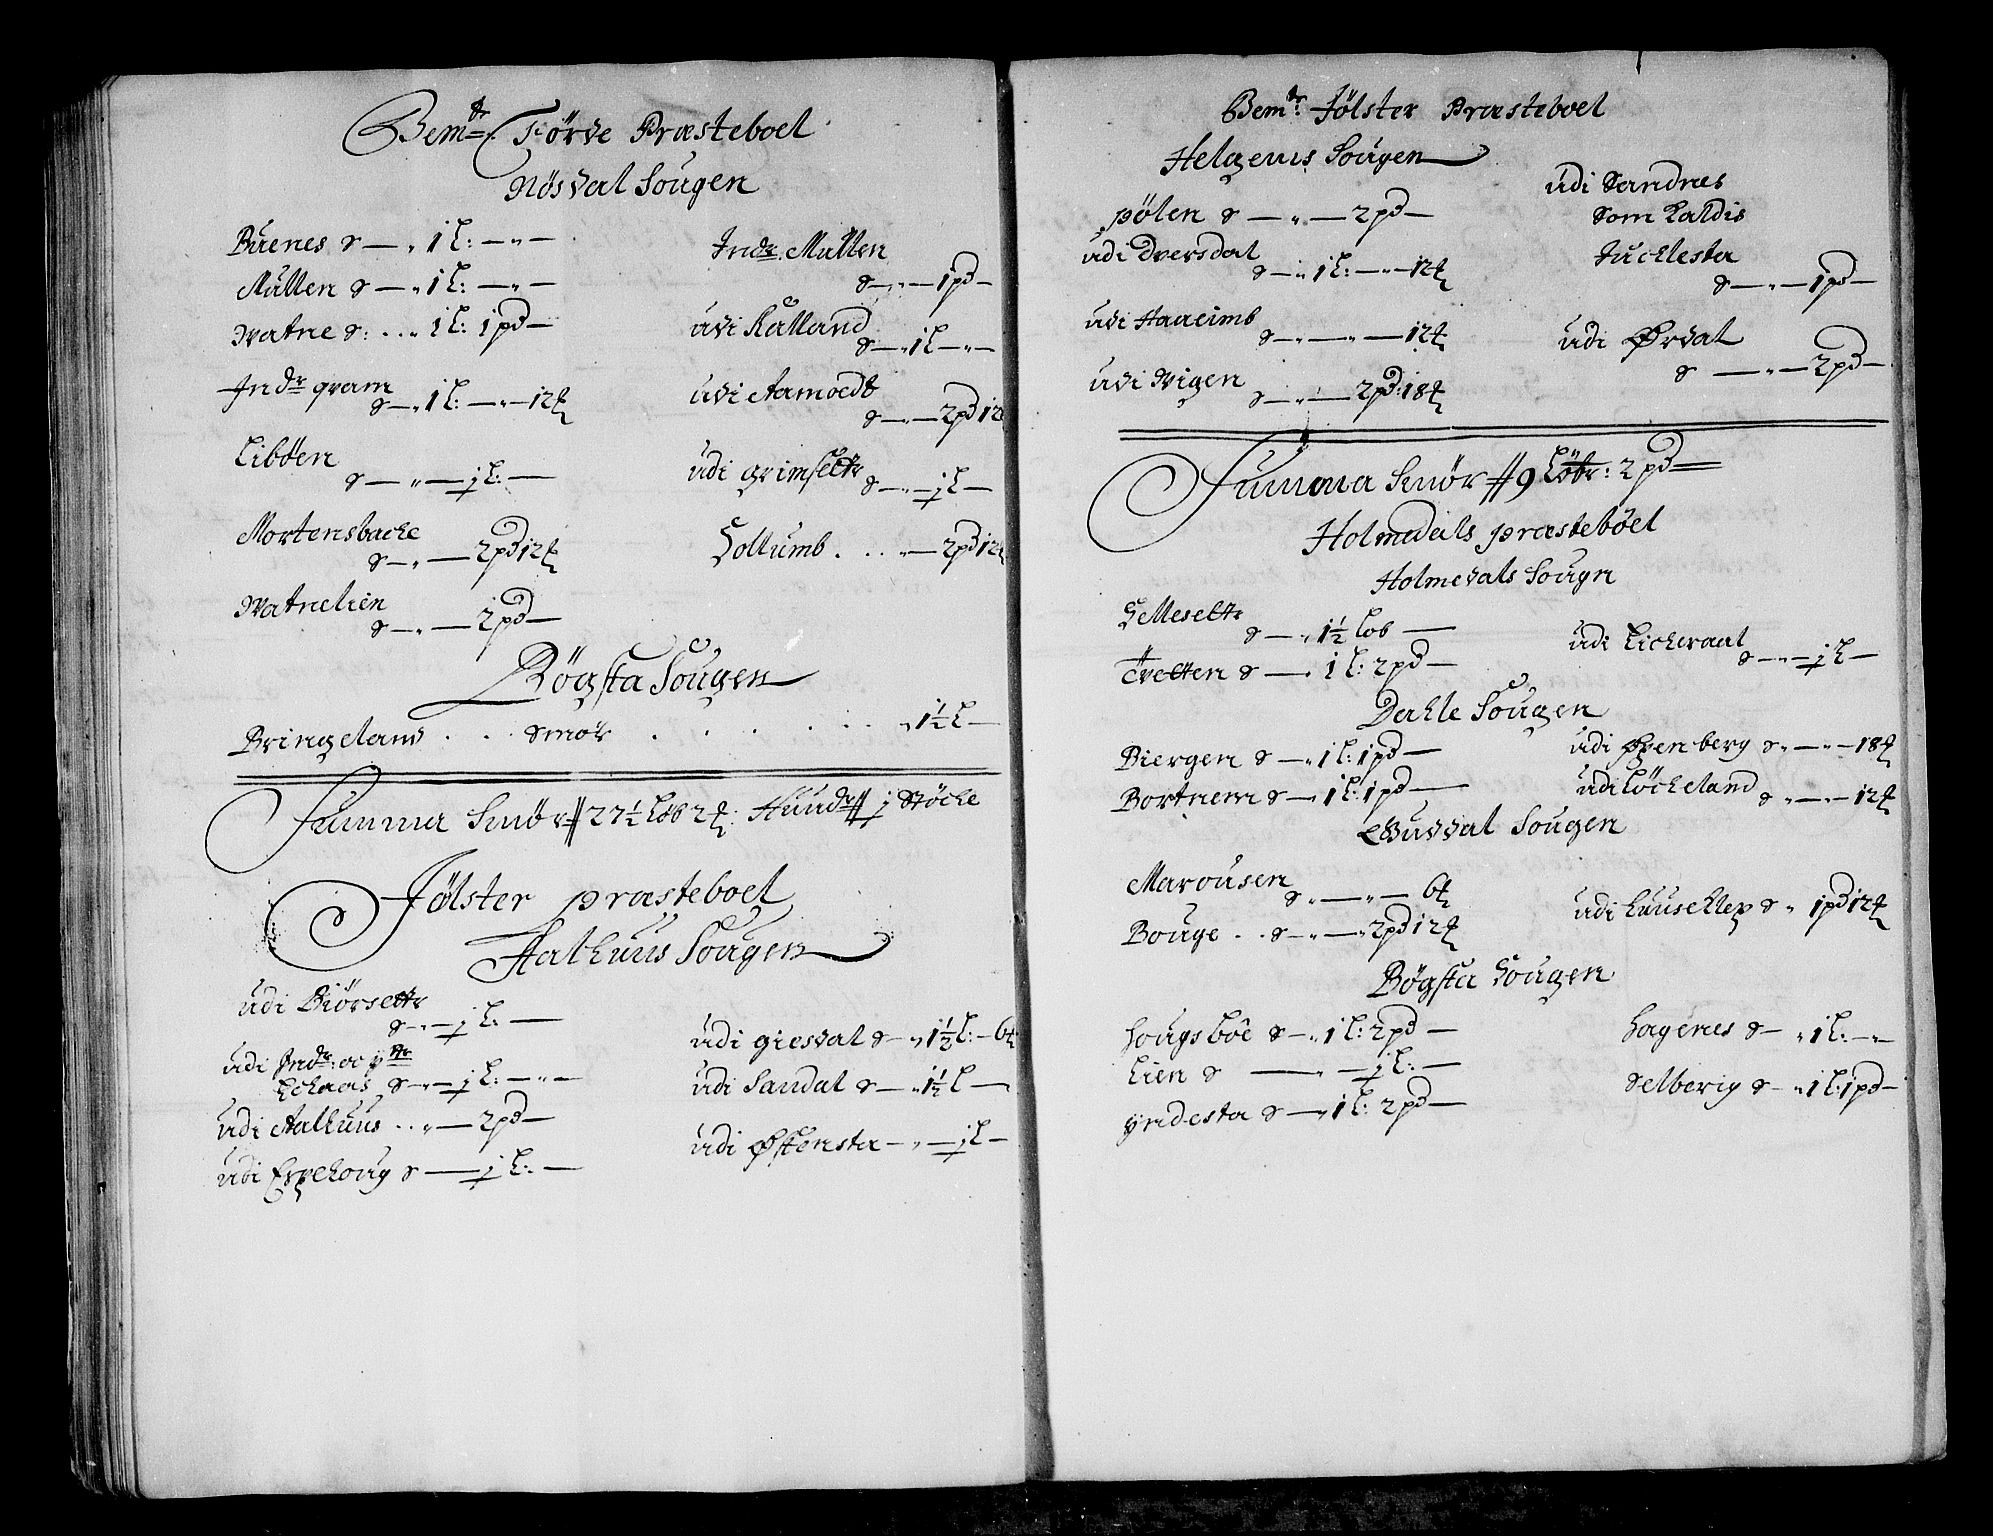 Bem:te Førde Præsteboel
Nøsdal Sougen
Buenes S — „ 1 L: — „ —
Mullen S — „ 1 L: — „ —
Watne S: . . „ 1 L: 1 pd —
Indr qvam
S — „ 1 L: — „ — 12 ℔
Libøen
S — „ — ½ L: —
Mortensbache
S — „ — 2 pd 12 ℔
Watnelien
S — „ — 2 pd —
Indr. Mullen
S — „ — 1 pd —
udi Kalland
S — 1 L — „ —
udi Aamoedt
S — „ — 2 pd 12
udi Grimsettr
S — „ — ½ L —
Sollumb . . . „ — 2 pd 12 ℔
Bøgsta Sougen
Bringeland . . . Smør . . . . . . „ 1½ L —
Summa Smør // 27½ Løb 2 ℔: Huudr // ½ Støche
Jølster præsteboel
Aalhuus Sougen
udi Biørsettr
S — „ — ½ L: —
udi Indr: oc ytr
Echaas S — „ — ½ L: — „ —
udi Aalhuus . . „ — 2 pd —
udi Espehoug S — ½ L: —
udi giesdal S — „ 1½ L: — 6 ℔
udi Sandal S — „ 1½ L —
udi Østensta — „ — ½ L —
Bem:te Jølster Præsteboel
Helgems Sougen
pølen S — „ — 2 pd —
udi Dversdal
S — „ 1 L: — „ — 12 ℔
udi Haaeimb
S — „ — „ — 12 ℔
udi Wigen
S — „ — 2 pd: 18 ℔
udi Sandnes
Som Kaldis
Juchlesta
S — „ — 1 pd —
udi Ørdal
S — „ — 2 pd —
Summa Smør // 9 Løbr: 2 pd —
Holmedals præstebøel
Holmedals Sougn
Sellesettr
S — „ 1½ Løb —
Tvetten S — „ 1 L: 2 pd —
udi Licheraal
S — „ — ½ L —
Dahle Sougen
Biergen S — „ 1 L: 1 pd —
Bortnem S — „ 1 L: 1 pd —
udi Øpenberg S „ — „ — 18 ℔
udi Løcheland
S „ — „ — 12 ℔
Guddal Sougen
Marousen
S „ — „ — 6 ℔
Bouge . . S — „ — 2 pd 12 ℔
udi Luuseklep S „ 1 pd 12 ℔
Bøgsta Sougen
Hougsbøe S — „ 1 L: 2 pd —
Lien S — „ — ½ L: —
yndesta S — „ 1 L: 2 pd —
Hagenes S — „ 1 L: — „ —
Selberig S — „ 1 L: 1 pd —